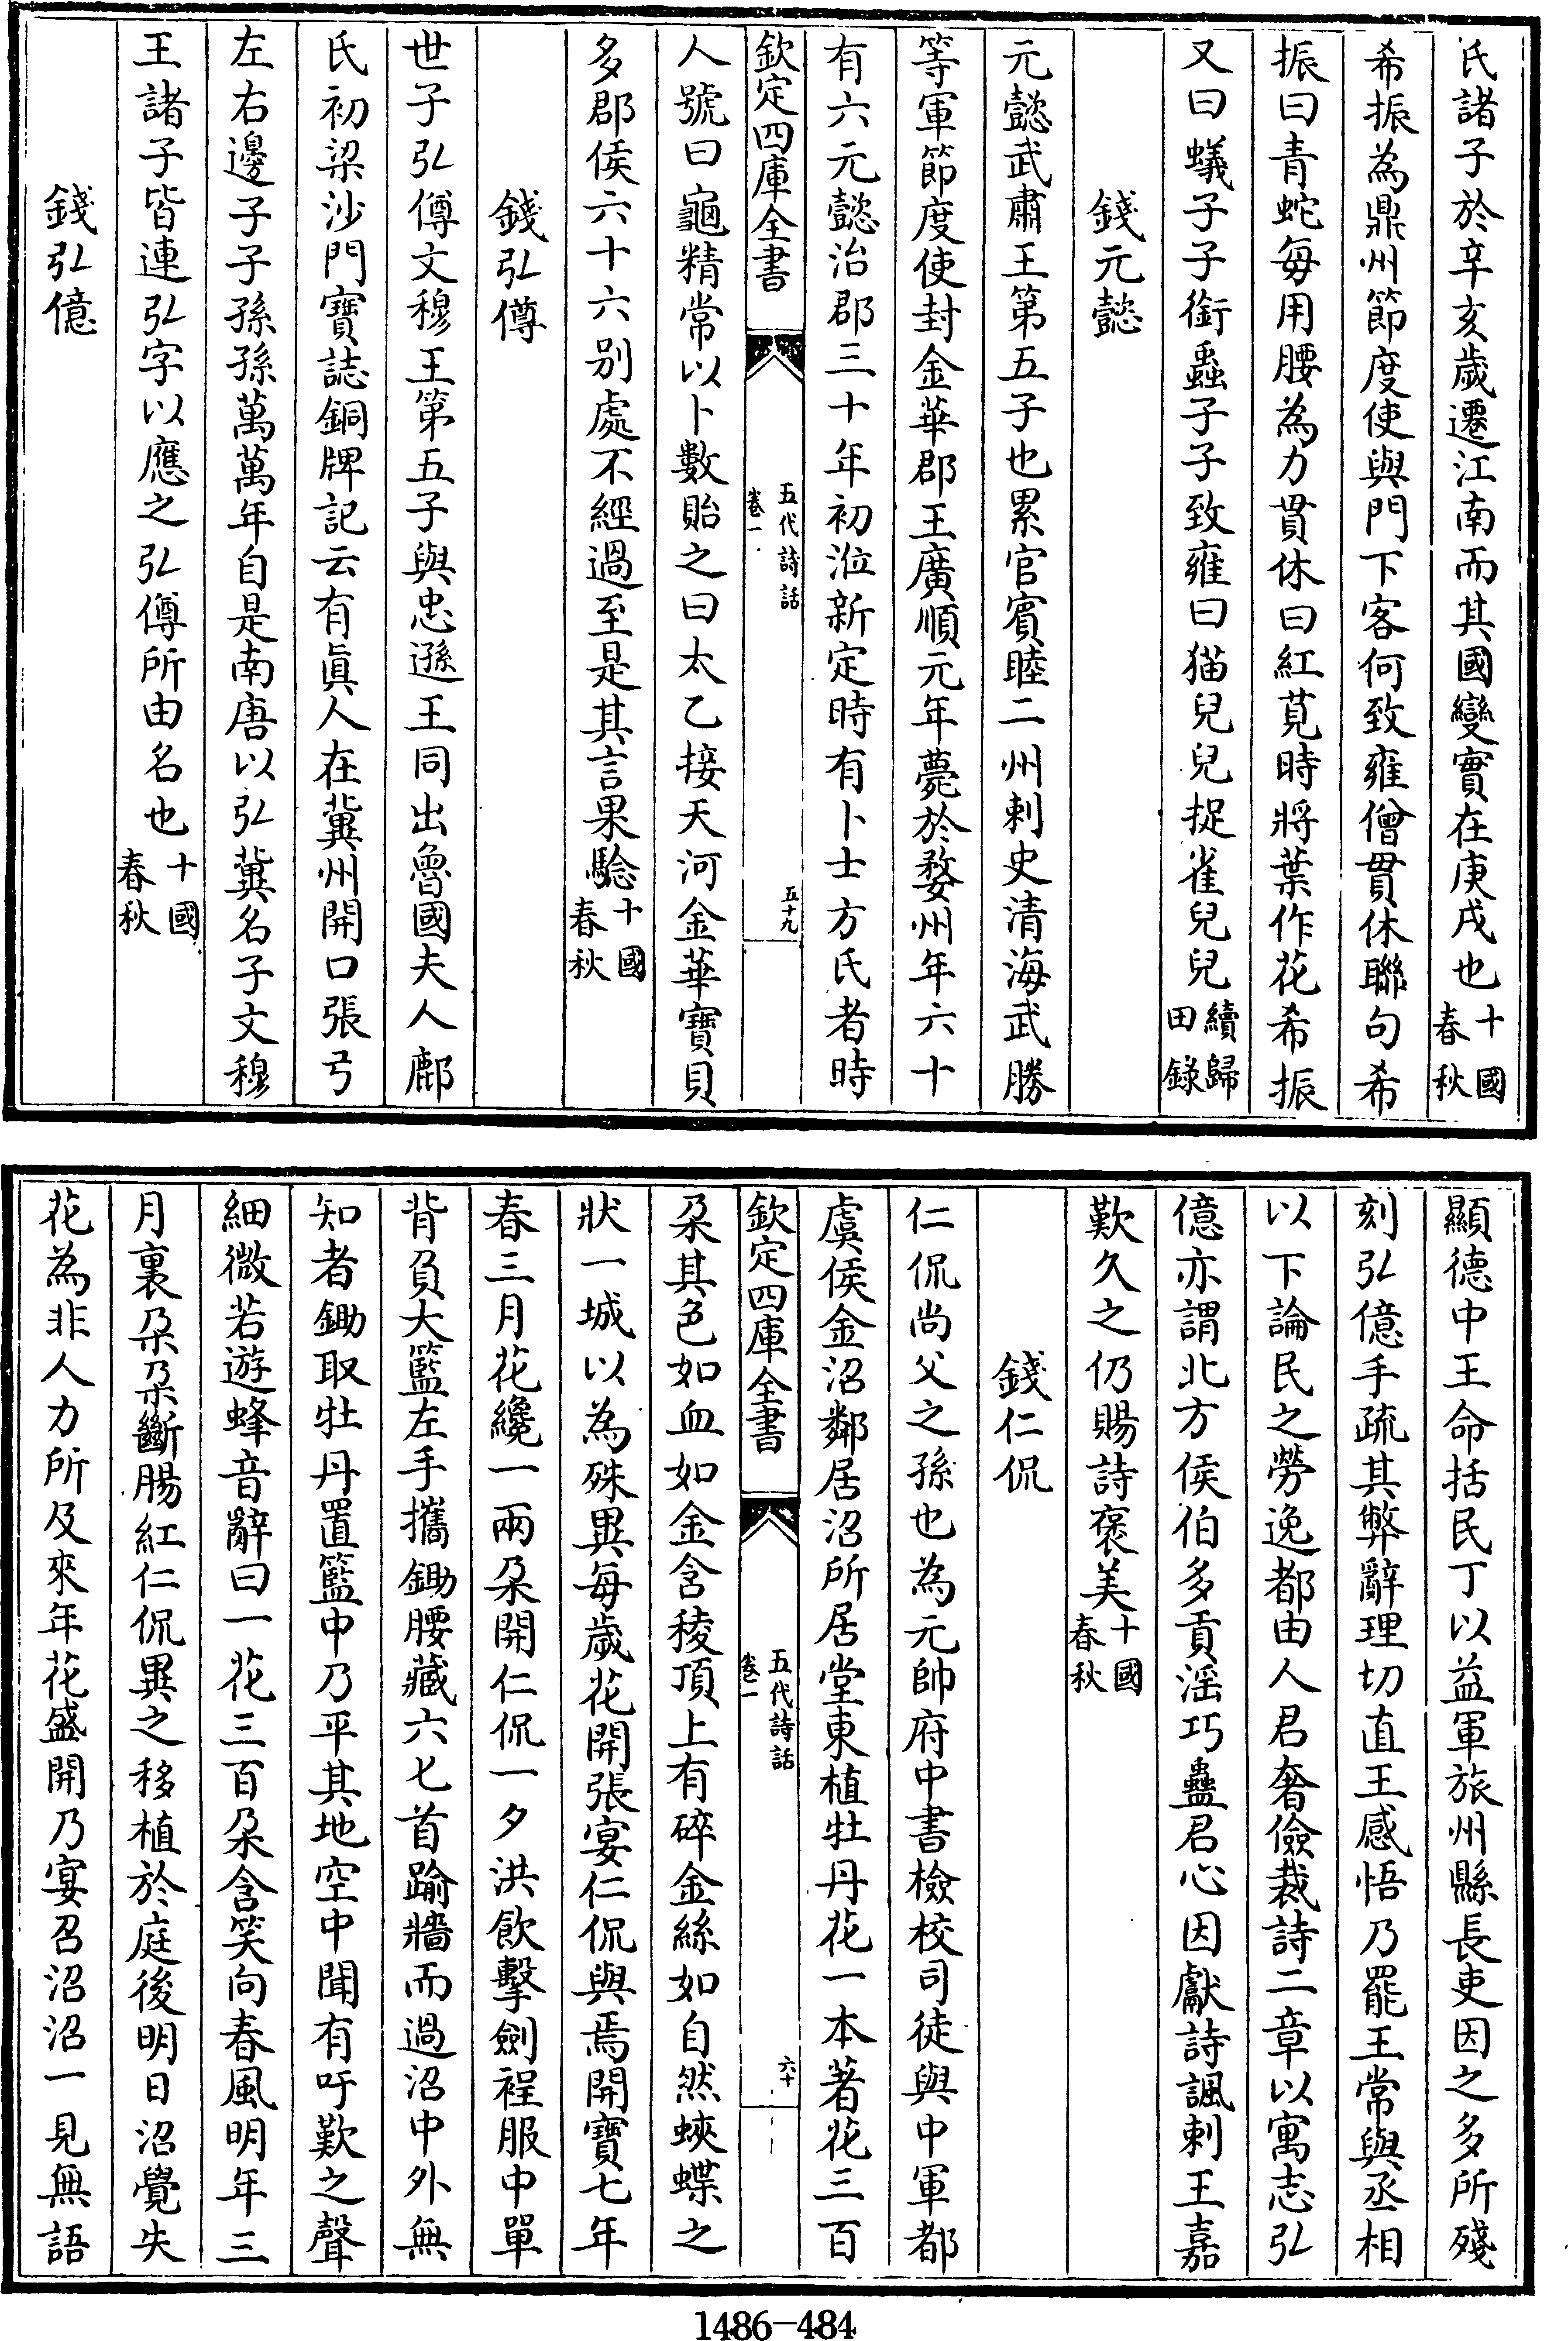 氏諸子於辛亥歲遷江南而其國變實在庚戌也十國春秋
希振為鼎州節度使與門下客何致雍僧貫休聯句希
振曰青蛇每用腰為力貫休曰紅莧時將葉作花希振
又曰蟻子子銜蟲子子致雍曰猫兒兒捉雀兒兒續歸田錄
錢元懿
元懿武肅王第五子也累官賓睦二州刺史清海武勝
等軍節度使封金華郡王廣順元年薨於婺州年六十
有六元懿治郡三十年初涖新定時有卜士方氏者時
欽定四庫全書
五代詩話
卷一
五十九
人號曰龜精常以卜數貽之曰太乙接天河金華寶貝
多郡侯六十六别處不經過至是其言果驗十國春秋
錢弘僔
世子弘僔文穆王第五子與忠遜王同出魯國夫人鄜
氏初梁沙門寶誌銅牌記云有眞人在冀州開口張弓
左右邊子子孫孫萬萬年自是南唐以弘冀名子文穆
王諸子皆連弘字以應之弘僔所由名也十國春秋
錢弘億
顯德中王命括民丁以益軍旅州縣長吏因之多所殘
刻弘億手疏其弊辭理切直王感悟乃罷王常與丞相
以下論民之勞逸都由人君奢儉裁詩二章以寓志弘
億亦謂北方侯伯多貢滛巧蠱君心因獻詩諷刺王嘉
歎久之仍賜詩褒美十國春秋
錢仁侃
仁侃尚父之孫也為元帥府中書檢校司徒與中軍都
虞侯金沼鄰居沼所居堂東植牡丹花一本著花三百
欽定四庫全書
五代詩話
卷一
六十
朶其色如血如金含稜頂上有碎金絲如自然蛺蝶之
狀一城以為殊異每歲花開張宴仁侃與焉開寶七年
春三月花纔一兩朶開仁侃一夕洪飲擊劍裎服中單
背負大籃左手攜鋤腰藏六七首踰牆而過沼中外無
知者鋤取牡丹置籃中乃平其地空中聞有吁歎之聲
細微若遊蜂音辭曰一花三百朶含笑向春風明年三
月裏朶朶斷腸紅仁侃異之移植於庭後明日沼覺失
花為非人力所及來年花盛開乃宴召沼沼一見無語
1486—484